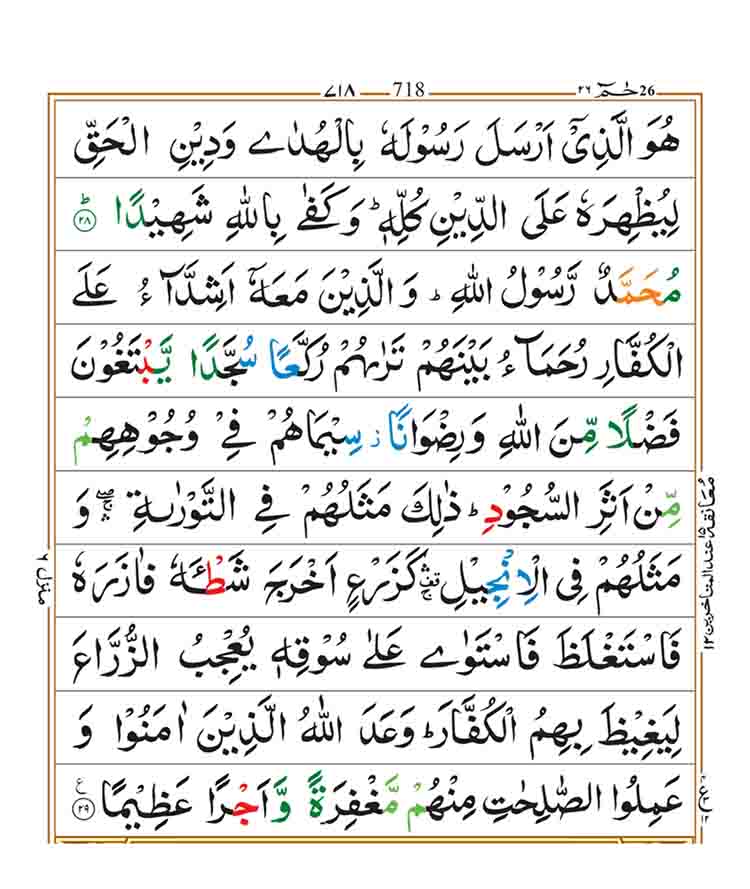 ٧١٨ 718 حٰمٓ ٢٦ 26
هُوَ الَّذِیْۤ اَرْسَلَ رَسُوْلَهٗ بِالْهُدٰے وَدِیْنِ الْحَقِّ
لِیُظْهِرَهٗ عَلَی الدِّیْنِ کُلِّهٖ ؕ وَکَفٰے بِاللّٰهِ شَهِیْدًا ؕ ﴿٢٨﴾
مُحَمَّدٌ رَّسُوْلُ اللّٰهِ ؕ وَالَّذِیْنَ مَعَهٗۤ اَشِدَّآءُ عَلَے
الْکُفَّارِ رُحَمَآءُ بَیْنَهُمْ تَرٰىهُمْ رُکَّعًا سُجَّدًا یَّبْتَغُوْنَ
فَضْلًا مِّنَ اللّٰهِ وَرِضْوَانًا ؗ سِیْمَاهُمْ فِیْ وُجُوْهِهِمْ
مِّنْ اَثَرِ السُّجُوْدِ ؕ ذٰلِكَ مَثَلُهُمْ فِے التَّوْرٰىةِ ۛۖۚ وَ
مَثَلُهُمْ فِی الْاِنْجِیْلِ ۛۚ کَزَرْعٍ اَخْرَجَ شَطْـَٔهٗ فَاٰزَرَهٗ
فَاسْتَغْلَظَ فَاسْتَوٰے عَلٰی سُوْقِهٖ یُعْجِبُ الزُّرَّاعَ
لِیَغِیْظَ بِهِمُ الْکُفَّارَ ؕ وَعَدَ اللّٰهُ الَّذِیْنَ اٰمَنُوْا وَ
عَمِلُوا الصّٰلِحٰتِ مِنْهُمْ مَّغْفِرَةً وَّاَجْرًا عَظِیْمًا ﴿٢٩﴾ ع
معانقة ١٥ عند المتاخرین ١٢
منزل ٦